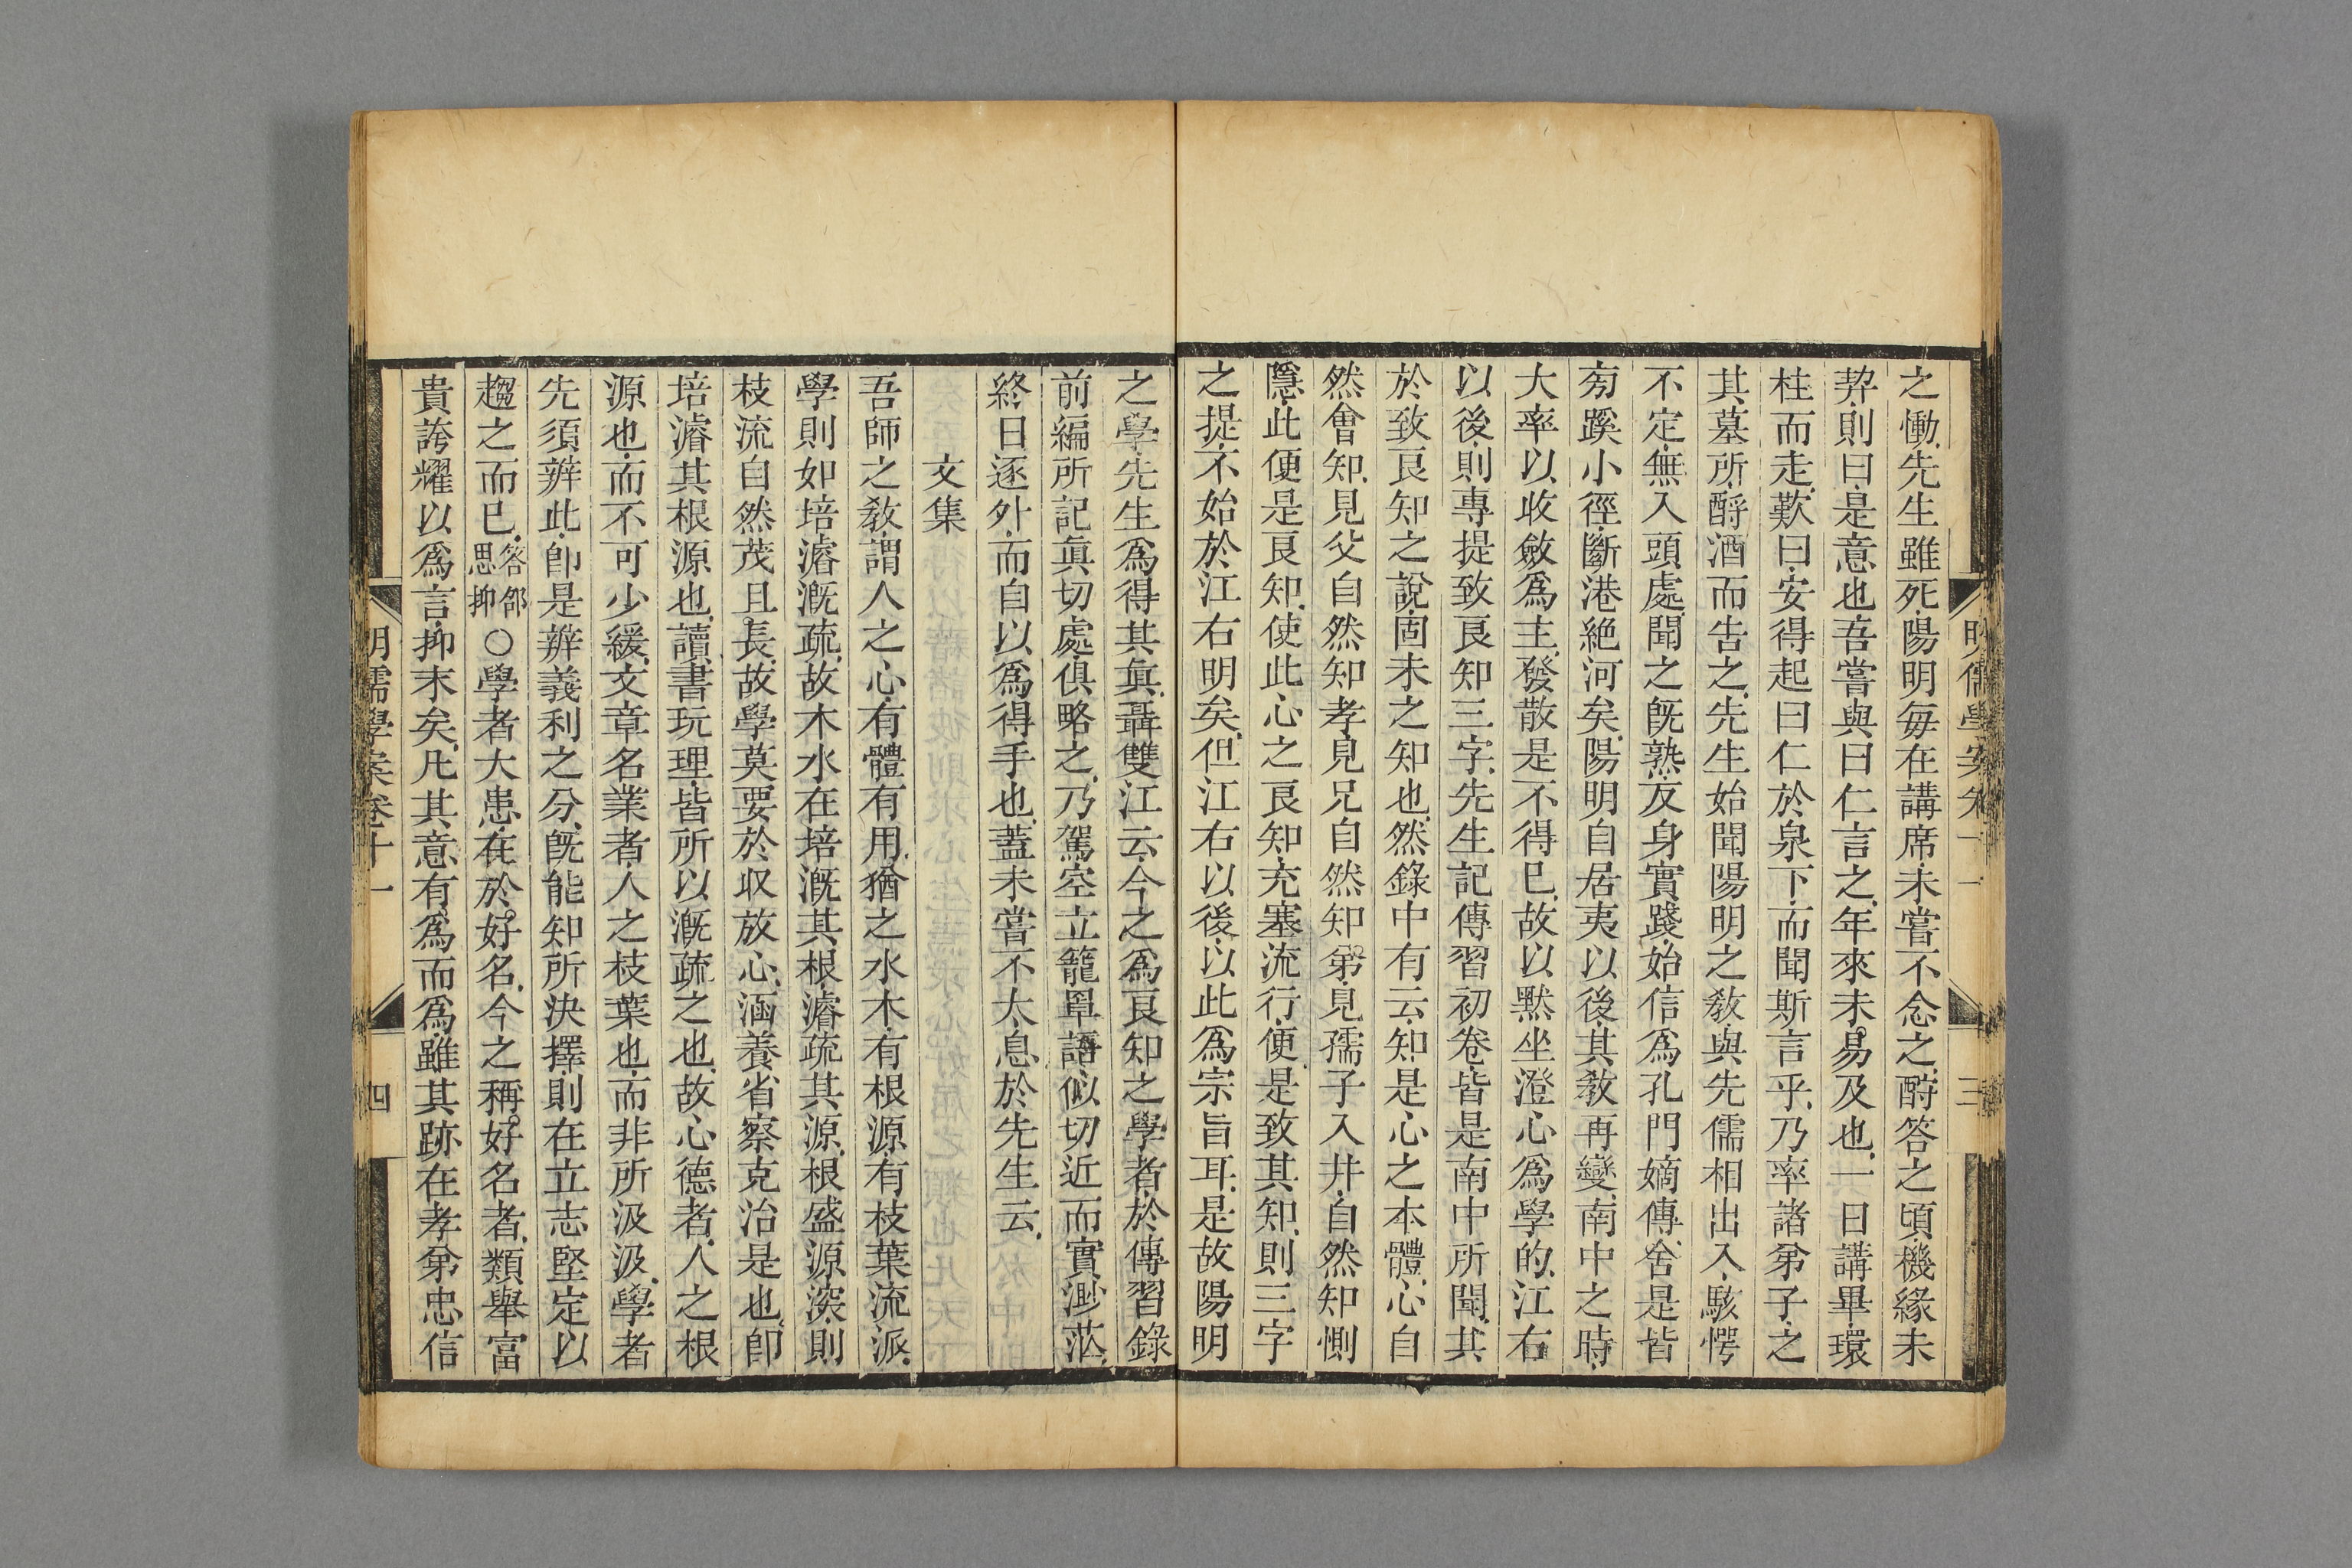 之慟先生雖死陽明每在講席未嘗不念之酧答之頃機緣未
𢍆則曰是意也吾嘗與曰仁言之年來未易及也一日講畢環
柱而走歎曰安得起曰仁於泉下而聞斯言乎乃率諸弟子之
其墓所酹酒而告之先生始聞陽明之敎與先儒相出入駭愕
不定無入頭處聞之旣熟反身實踐始信爲孔門嫡傳舍是皆
旁蹊小徑斷港絕河矣陽明自居夷以後其敎再變南中之時
大率以收斂爲主發散是不得已故以默坐澄心爲學的江右
以後則專提致良知三字先生記傳習初卷皆是南中所聞其
於致良知之說固未之知也然錄中有云知是心之本體心自
然會知見父自然知孝見兄自然知弟見孺子入井自然知惻
隱此便是良知使此心之良知充塞流行便是致其知則三字
之提不始於江右明矣但江右以後以此爲宗旨耳是故陽明
明儒學案卷十一
三
之學先生爲得其眞聶雙江云今之爲良知之學者於傳習錄
前編所記眞切處俱略之乃駕空立籠罩語似切近而實渺茫
終日逐外而自以爲得手也蓋未嘗不太息於先生云
文集
吾師之敎謂人之心有體有用猶之水木有根源有枝葉流派
學則如培濬漑疏故木水在培漑其根濬疏其源根盛源深則
枝流自然茂且長故學莫要於收放心涵養省察克治是也卽
培濬其根源也讀書玩理皆所以漑疏之也故心德者人之根
源也而不可少緩文章名業者人之枝葉也而非所汲汲學者
先須辨此卽是辨義利之分旣能知所決擇則在立志堅定以
趨之而已答邰思抑○學者大患在於好名今之稱好名者類舉富
貴誇耀以爲言抑末矣凡其意有爲而爲雖其跡在孝弟忠信
明儒學案卷十一
四